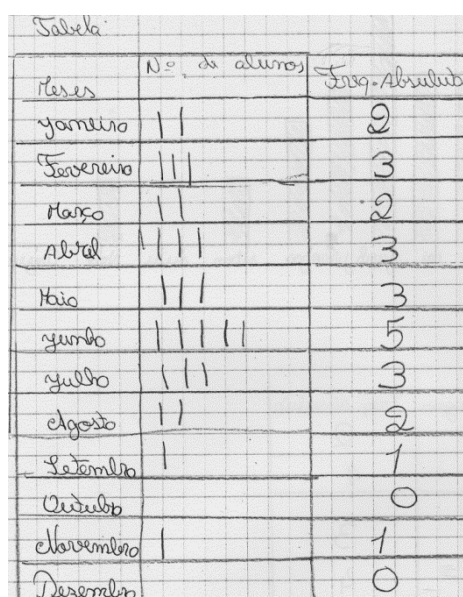 Tabela
Meses Nº de alunos Freq. Absoluta
Janeiro || 2
Fevereiro ||| 3
Março || 2
Abril |||| 3
Maio ||| 3
Junho ||||| 5
Julho ||| 3
Agosto || 2
Setembro | 1
Outubro 0
Novembro | 1
Dezembro 0